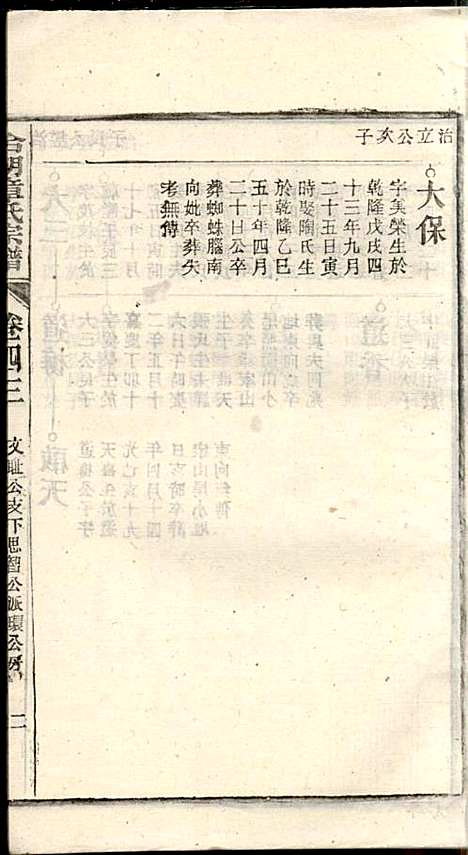 治立公次子
大保
字美榮生於
乾隆戊戌四
十三年九月
二十五日寅
時娶陶氏生
於乾隆乙巳
五十年四月
二十日公卒
葬蜘蛛腦南
向妣卒葬失
考無傳
章氏宗譜
卷四三
支祉公支下思智公派環公房
二